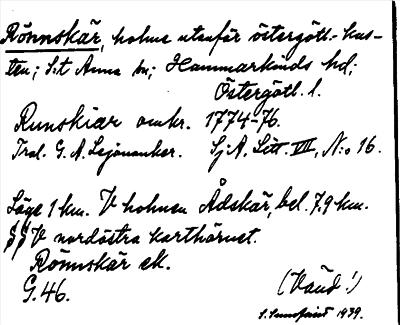 Rönnskär, holme utanför östergötl.-kus-
ten; S:t Anna sn; Hammarkinds hd;
Östergötl. l.
Runskiär omkr. 1774-76.
Tral. G. A. Lejonanker. Sj.A. Litt. VII, N:o 16.
Läge 1 km. V holmen Ådskär, bel. 7.9 km.
SSV nordöstra karthörnet.
Rönnskär ek.
G.46.
(Vänd!)
1939.